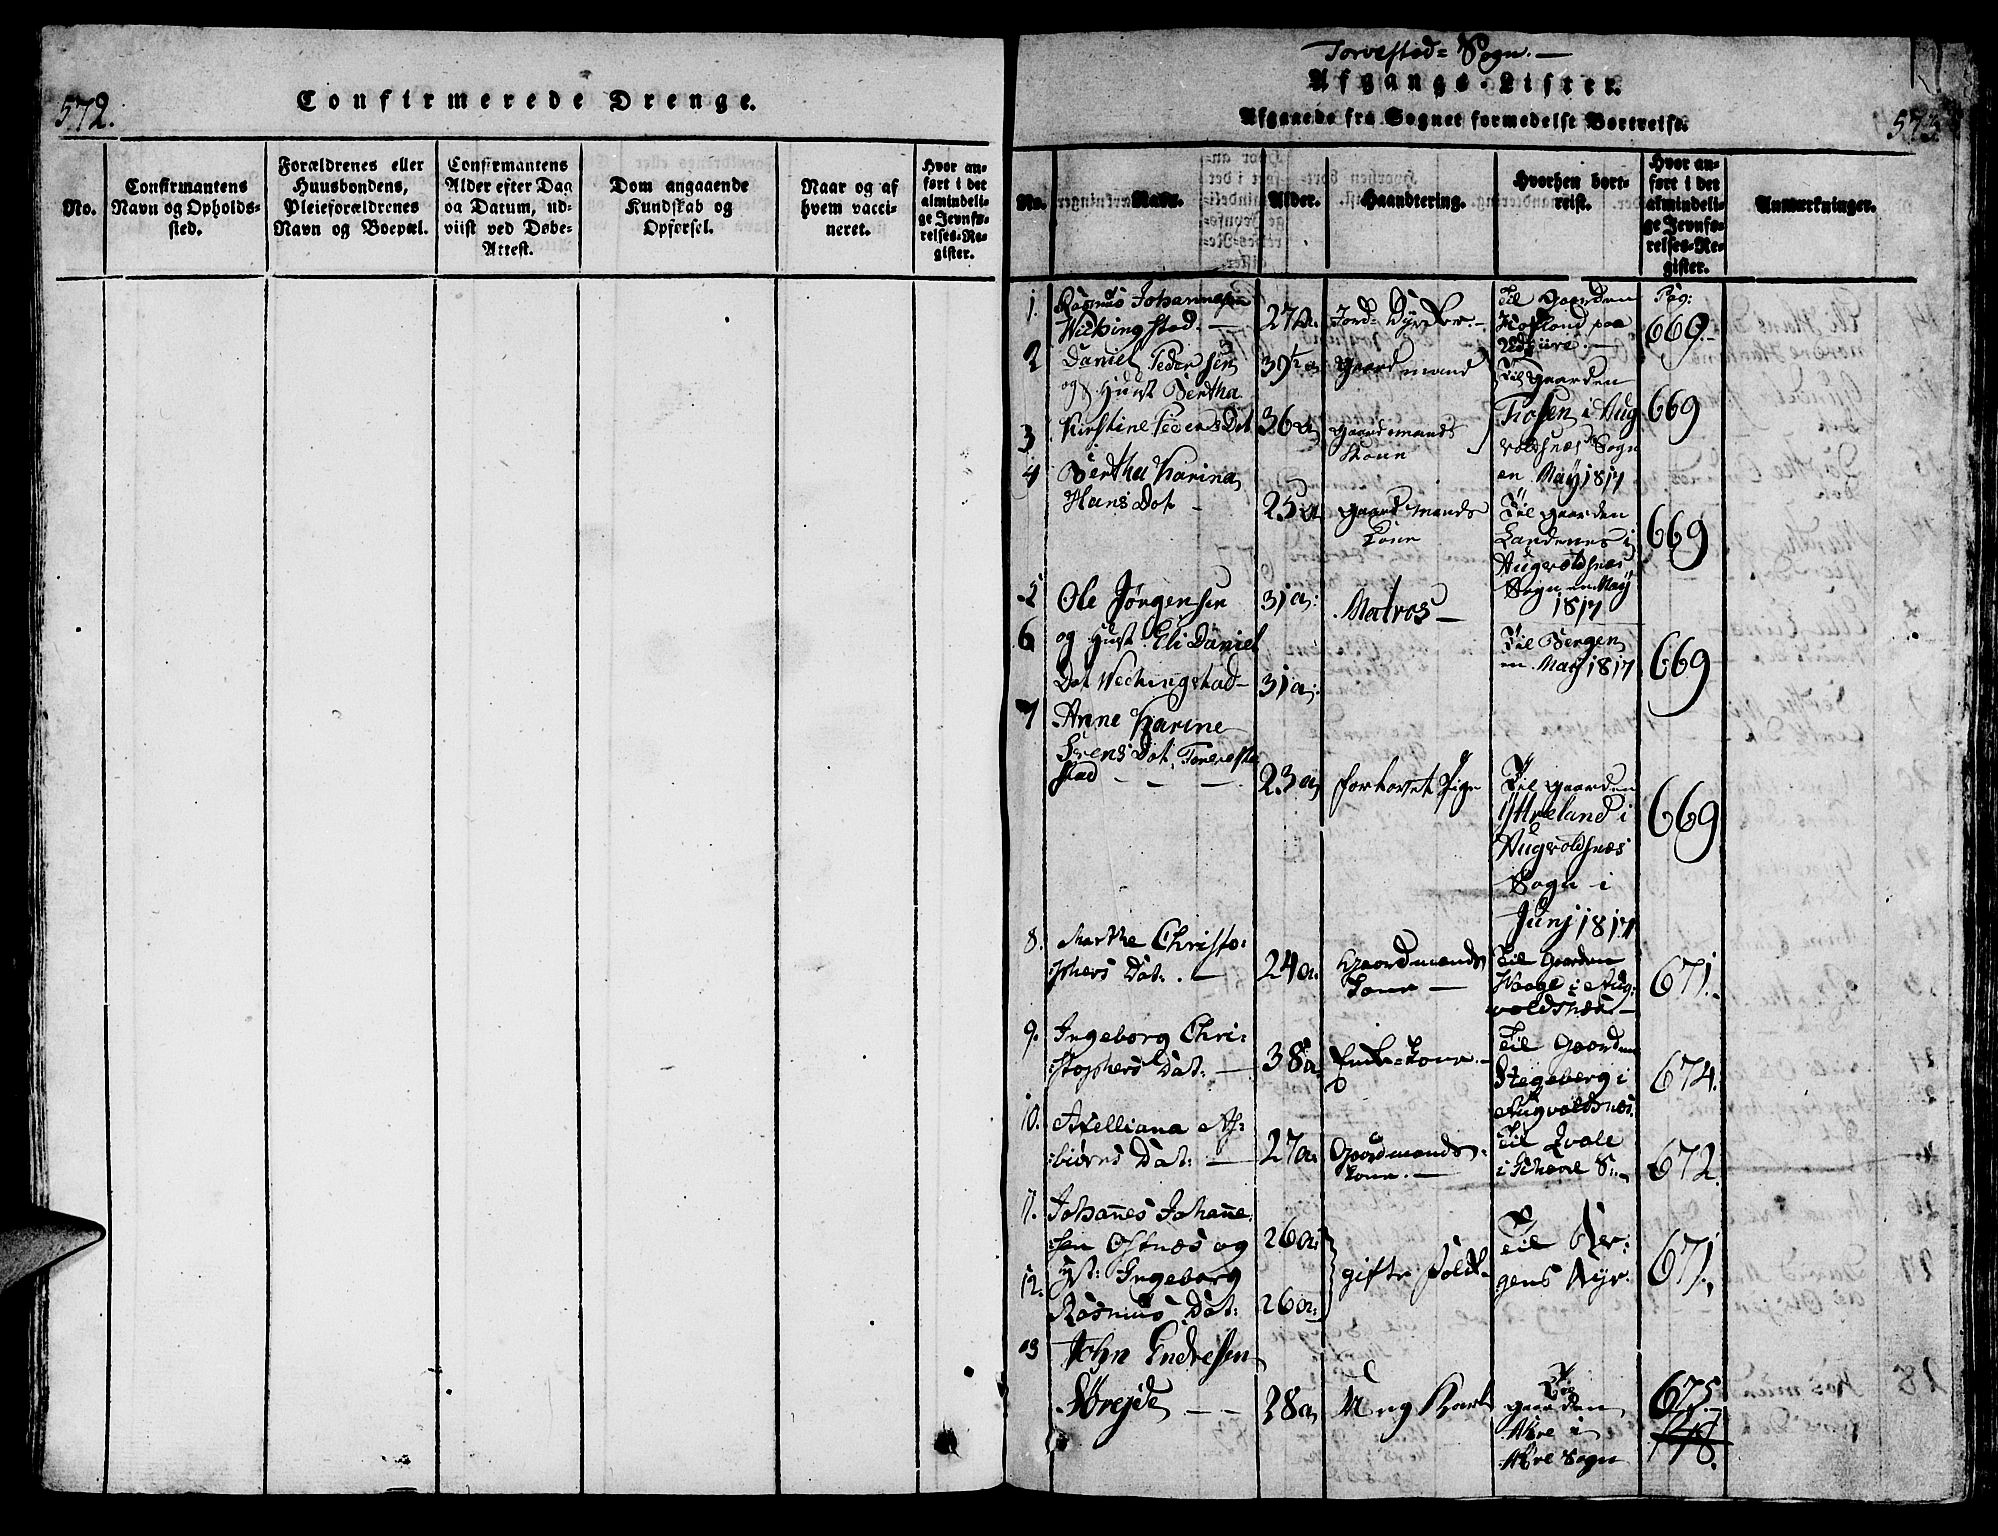 572.
Confirmerede Drenge.
No.
Confirmantens Navn og Opholdssted.
Forældrenes eller Huusbondens, Pleieforældrenes Navn og Boepæl.
Confirmantens Alder efter Dag og Datum, udviist ved Døbe-Attest.
Dom angaaende Kundskab og Opførsel.
Naar og af hvem vaccineret.
Hvor anført i det almindelige Jevnførelses-Register.
Torvestad= Sogn. —
Afgangs-Lister.
Afgaaede fra Sognet formedelst Bortreise.
573
No.
Navn.
Alder.
Haandtering.
Hvorhen bortreist.
Hvor anført i det almindelige Jevnførelses-Register.
Anmærkninger.
1. Rasmus Johannesen
Wichingstad. —
27a. Jord= Dyrker. —
Til Gaarden
paa
Udsiire. —
Pag:
669. —
2 Daniel Pedersen
og Hust Bertha
39½a Gaardmand
Til Gaarden
i Aug
voldsnæs Sogn
en May 1817
669
3 Kirstine Peders Dot
36a
Gaardmands
Kone
4 Bertha Karina
Hans Dot —
25a
Gaardmands
Kone
Til Gaarden
Landenes i
Augvoldsnæs
Sogn en May
1817
669
5 Ole Jørgensen
31a: Matros —
6 og Hust. Eli Daniel
Dot Wechingstad —
31a:
Til Bergen
en May 1817
669
7 Anne Karine
Dot,
stad — —
23a Pige
Til Gaarden
i
Augvoldsnæs
Sogn i
Junj 1817
669
8. Marthe Christo:
:phers Dat: —
24a. Gaardmands
Kone —
Til Gaarden
Hoge i Aug:
voldsnæs —
671. —
9. Ingeborg Chri:
:stophers Dat: —
38a. Enke=Kone. —
Til Gaarden
Stegeberg i
Augvoldsnæs.
674.
10. Axelliana As:
:biørns Dat: —
27a. Gaardmands:
Kone. —
Til Qvale
i Schaare S: —
672.
11. Johañes Johañe:
:sen Ostnæs og
26a:
12. Hst: Ingeborg
Rasmus Dat:
26a:
gifte Folk —
Til Ber:
gens Byr.
671.
13 John Endresen
— —
28a Ung Karl
Til
Gaarden
Akre i
Akre Sogn
675. —